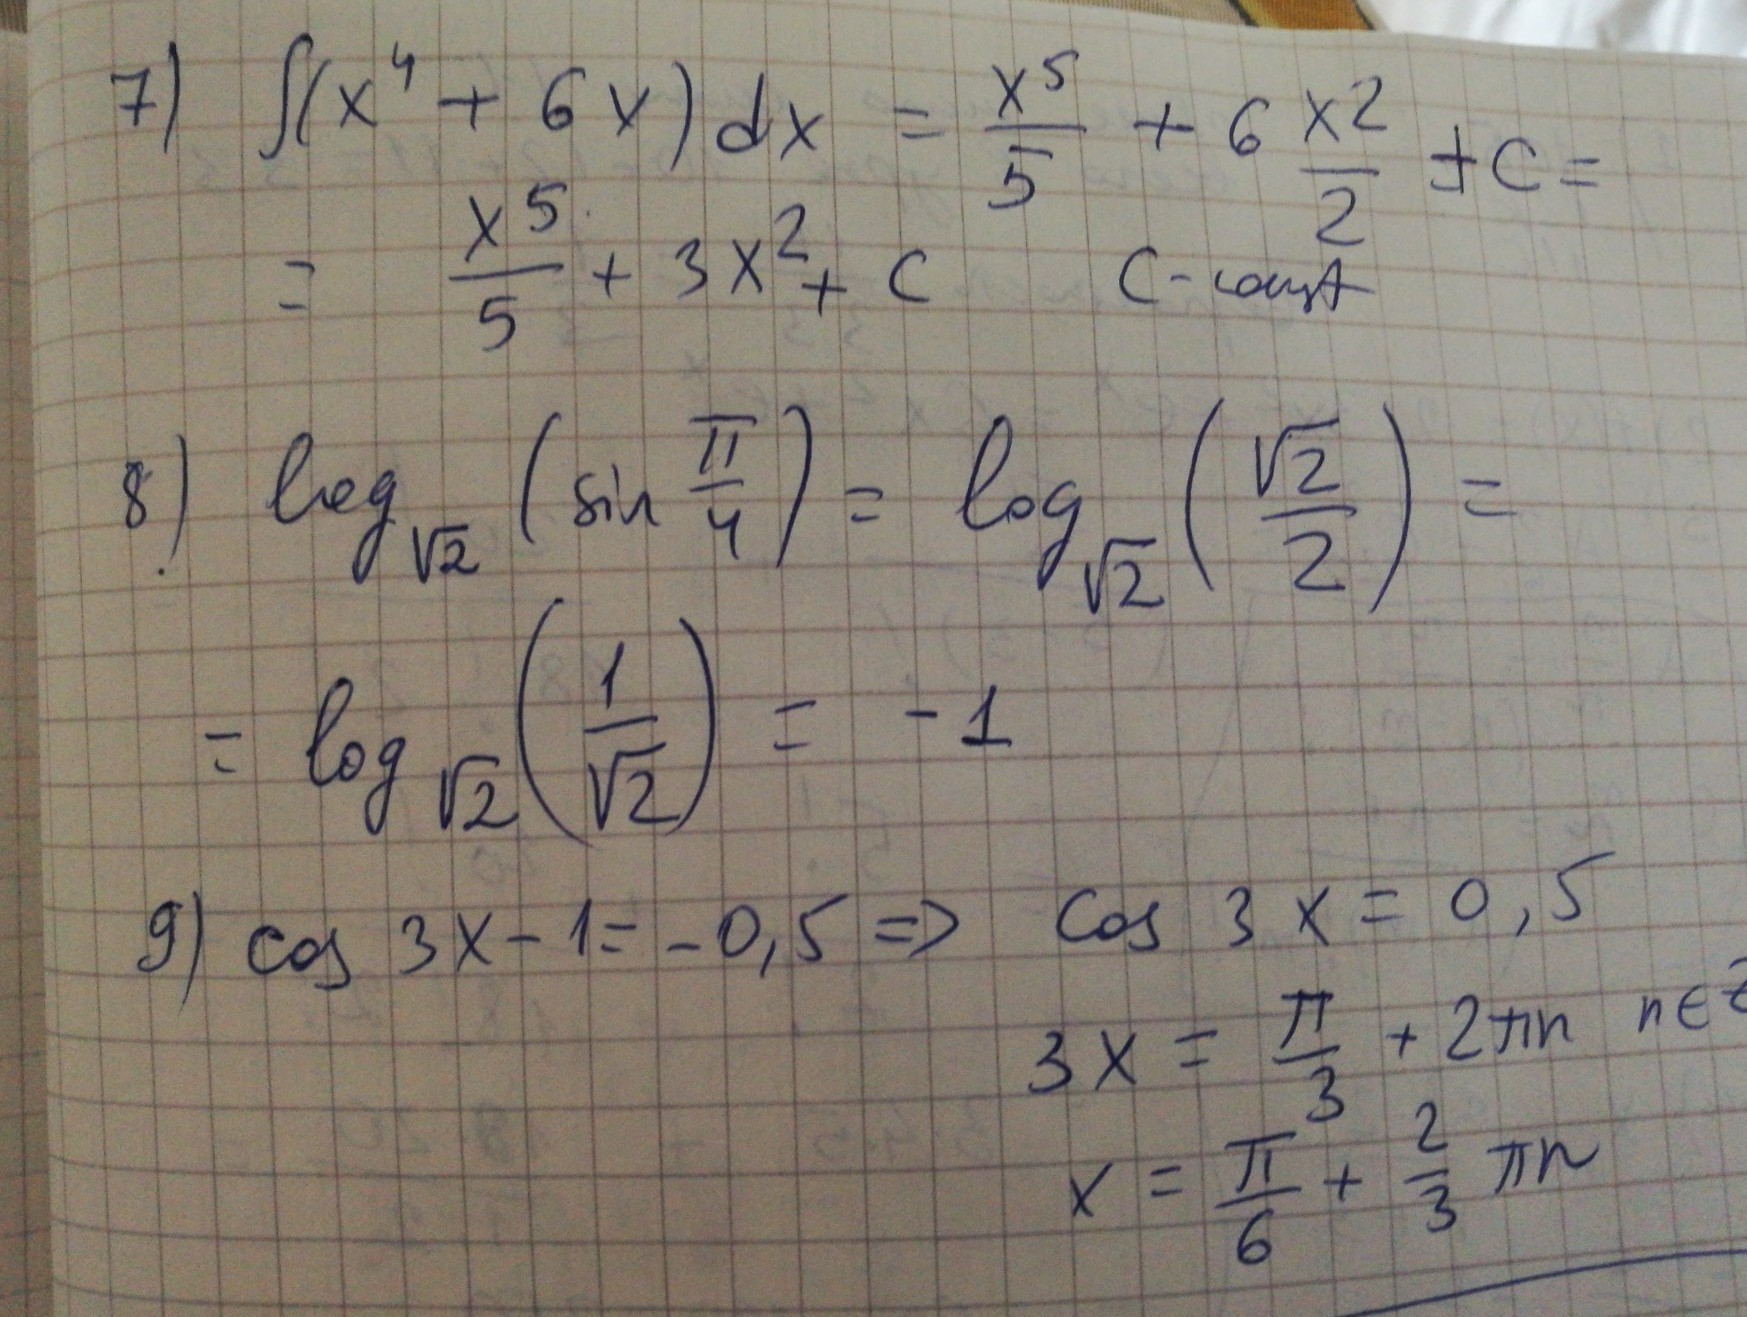 7) ∫(x⁴ + 6x)dx = x⁵/5 + 6 x²/2 + C =
= x⁵/5 + 3x² + C C - const
8) log_√2 (sin π/4) = log_√2 (√2/2) =
= log_√2 (1/√2) = -1
9) cos 3x - 1 = -0,5 => cos 3x = 0,5
3x = π/3 + 2πn n ∈ Z
x = π/6 + 2/3 πn